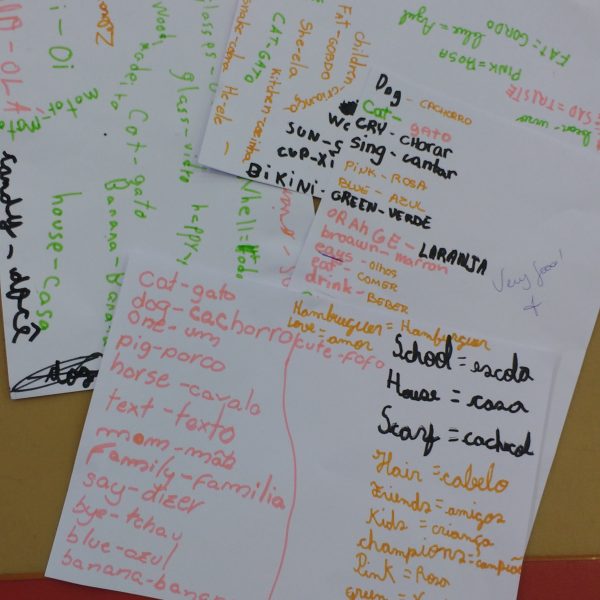 Dog - CACHORRO
Cat - gato
CRY - CHORAR
Sing - cantar
PINK - ROSA
BLUE - AZUL
GREEN - VERDE
ORANGE - LARANJA
broawn - marron
eays - olhos
eat - COMER
drink - BEBER
Very good!
SUN - S
CUP - XÍ
BIKINI -
children - criança
Fat - GORDO
She - ela
kitchen - cozinha
CAT - GATO
FAT = GORDO
blue = Azul
PINK = ROSA
SAD = TRISTE
i - Oi
OLÁ
glass - vidro
Cat - gato
Banana - Banana
house - casa
happy -
cat - gato
dog - cachorro
one - um
pig - porco
horse - cavalo
text - texto
mom - mãe
Family - familia
say - dizer
bye - tchau
blue - azul
banana - banan
Hamburguer = Hamburguer
Love = amor
cute - fofo
School = escola
House = casa
Scarf = cachecol
Hair = cabelo
Friends = amigos
Kids = criança
champions = campião
Pink = Rosa
green =